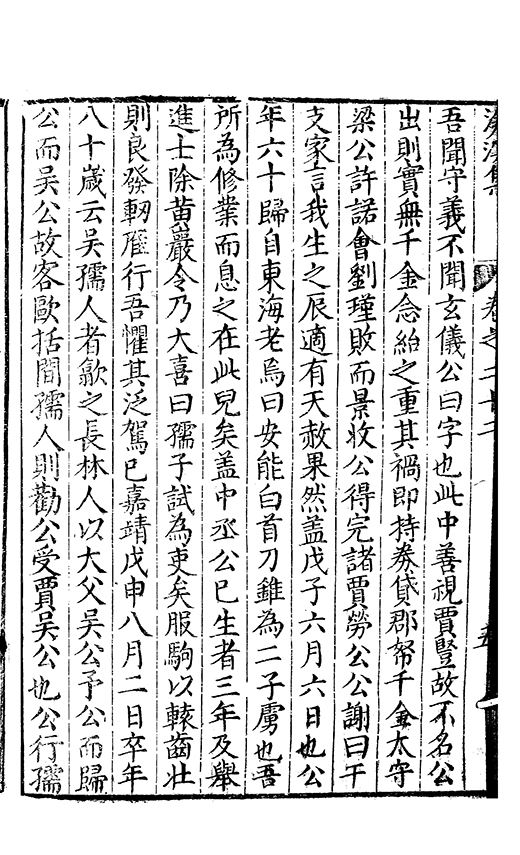 吾聞守義不聞玄儀公曰字也此中善視賈豎故不名公
出則實無千金念紿之重其禍即持券貸郡帑千金太守
梁公許諾會劉瑾敗而景收公得完諸賈勞公公謝曰干
支家言我生之辰適有天赦果然蓋戊子六月六日也公
年六十歸自東海老烏曰安能白首刀錐為二子虜也吾
所為修業而息之在此兒矣盖中丞公已生者三年及舉
進士除黄巖令乃大喜曰孺子試為吏矣服駒以轅齒壯
則良發軔雁行吾懼其泛駕已嘉靖戊申八月二日卒年
八十歲云吳孺人者歙之長林人以大父吳公予公而歸
公而吳公故客歐括間孺人則勸公受賈吳公也公行孺
卷之二十二